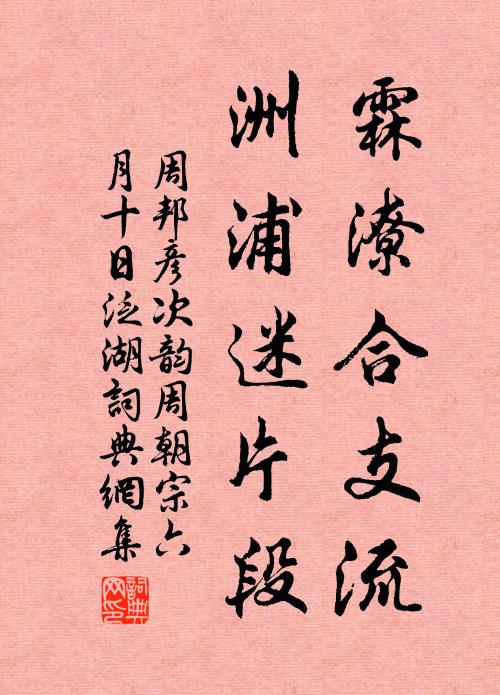 霖潦合支流
洲浦迷片段
周邦彦次韵周朝宗六
月十日泛湖詞典網集
詞典
网印